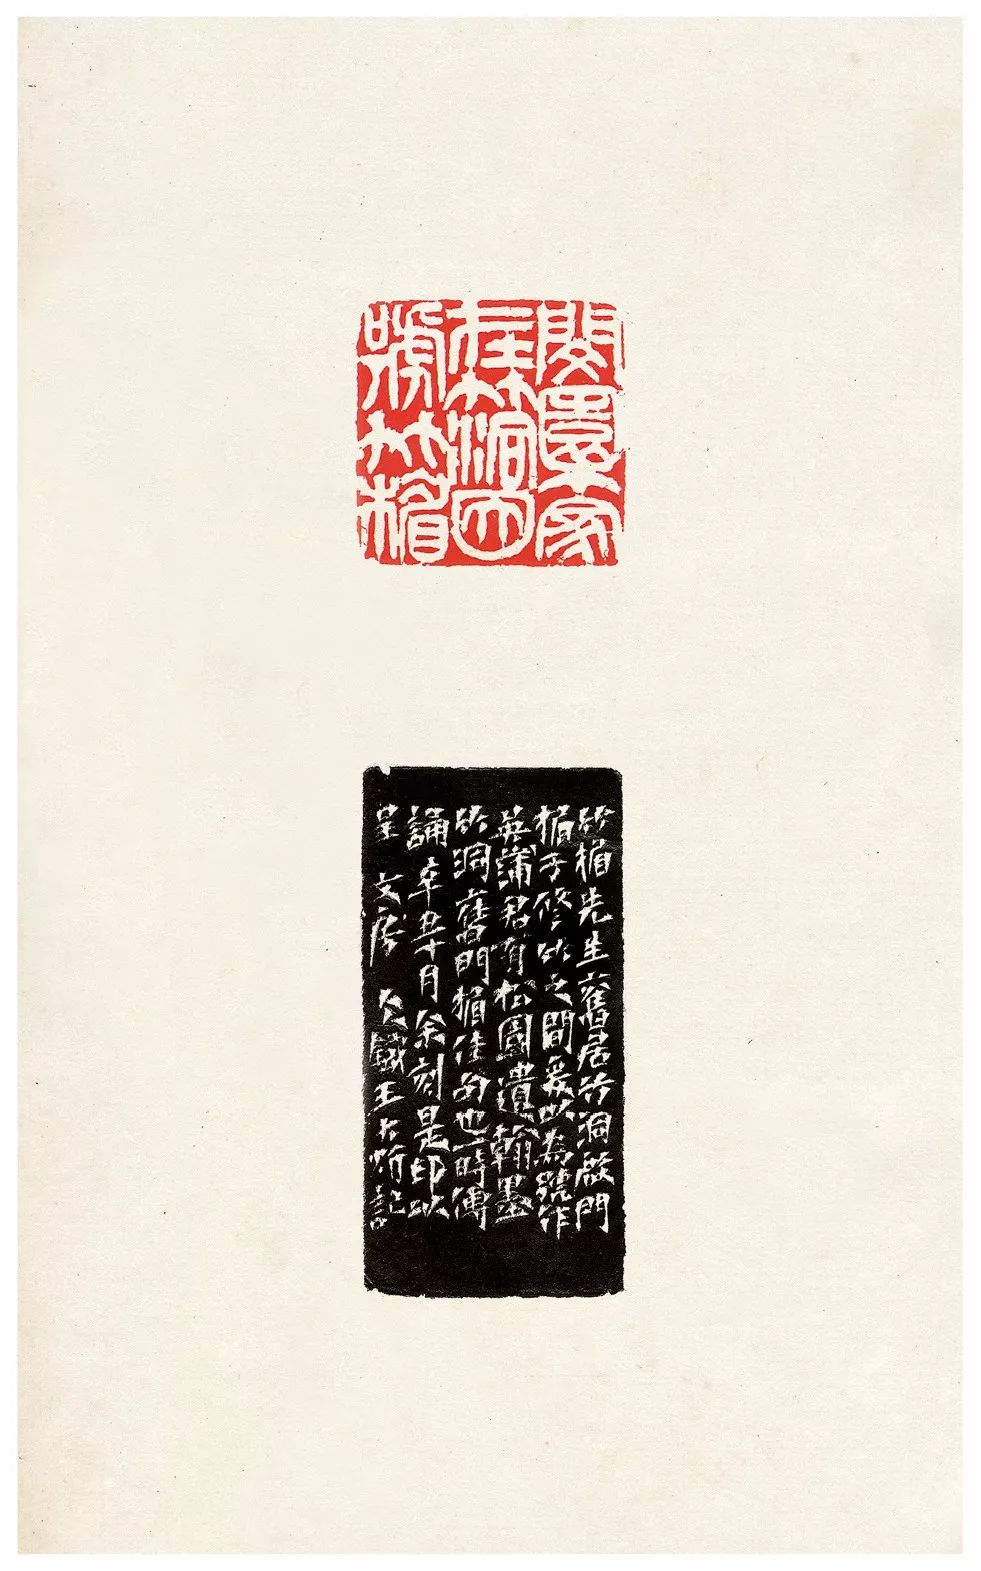 閔
家
在竹洞因
號竹楣
竹楣先生舊居竹洞啟門
楣于修竹之間爰以為號作
英蒲君有松園遺翰墨
竹洞舊門楣佳句也一時傳
誦辛丑十月余刻是印以
呈 文房 仌鐵王大炘記